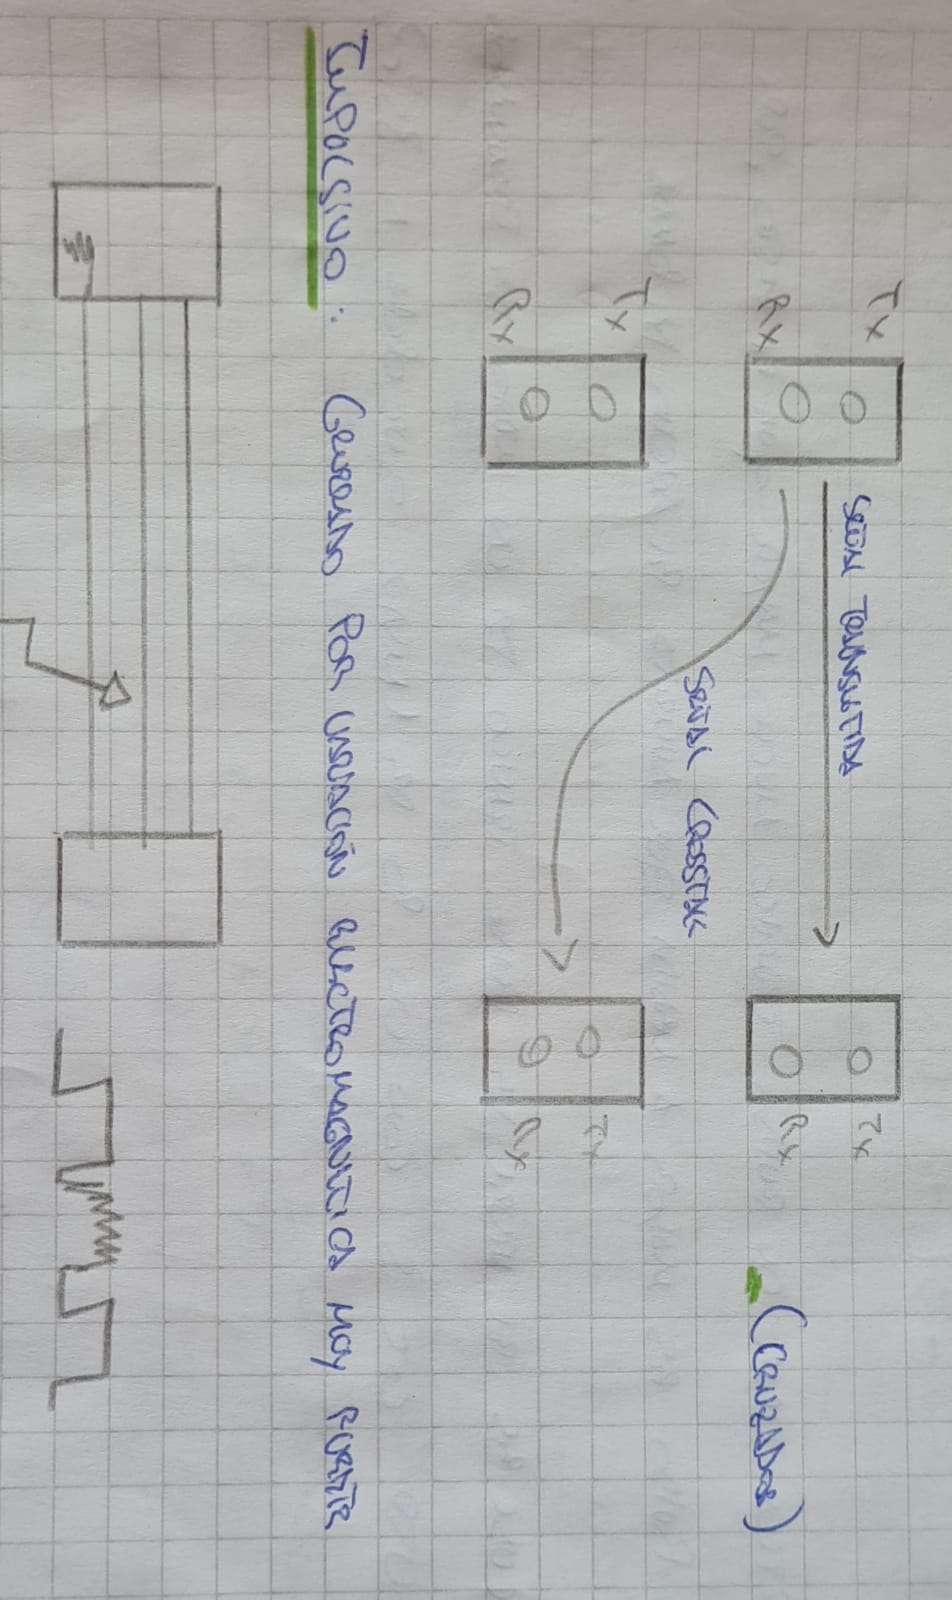 Tx Tx
SEÑAL TRANSMITIDA
Rx Rx
(CRUZADOS)
SEÑAL CROSSTALK
Tx Tx
Rx Rx
IMPULSIVO: GENERADO POR VARIACIÓN ELECTROMAGNETICA MUY FUERTE